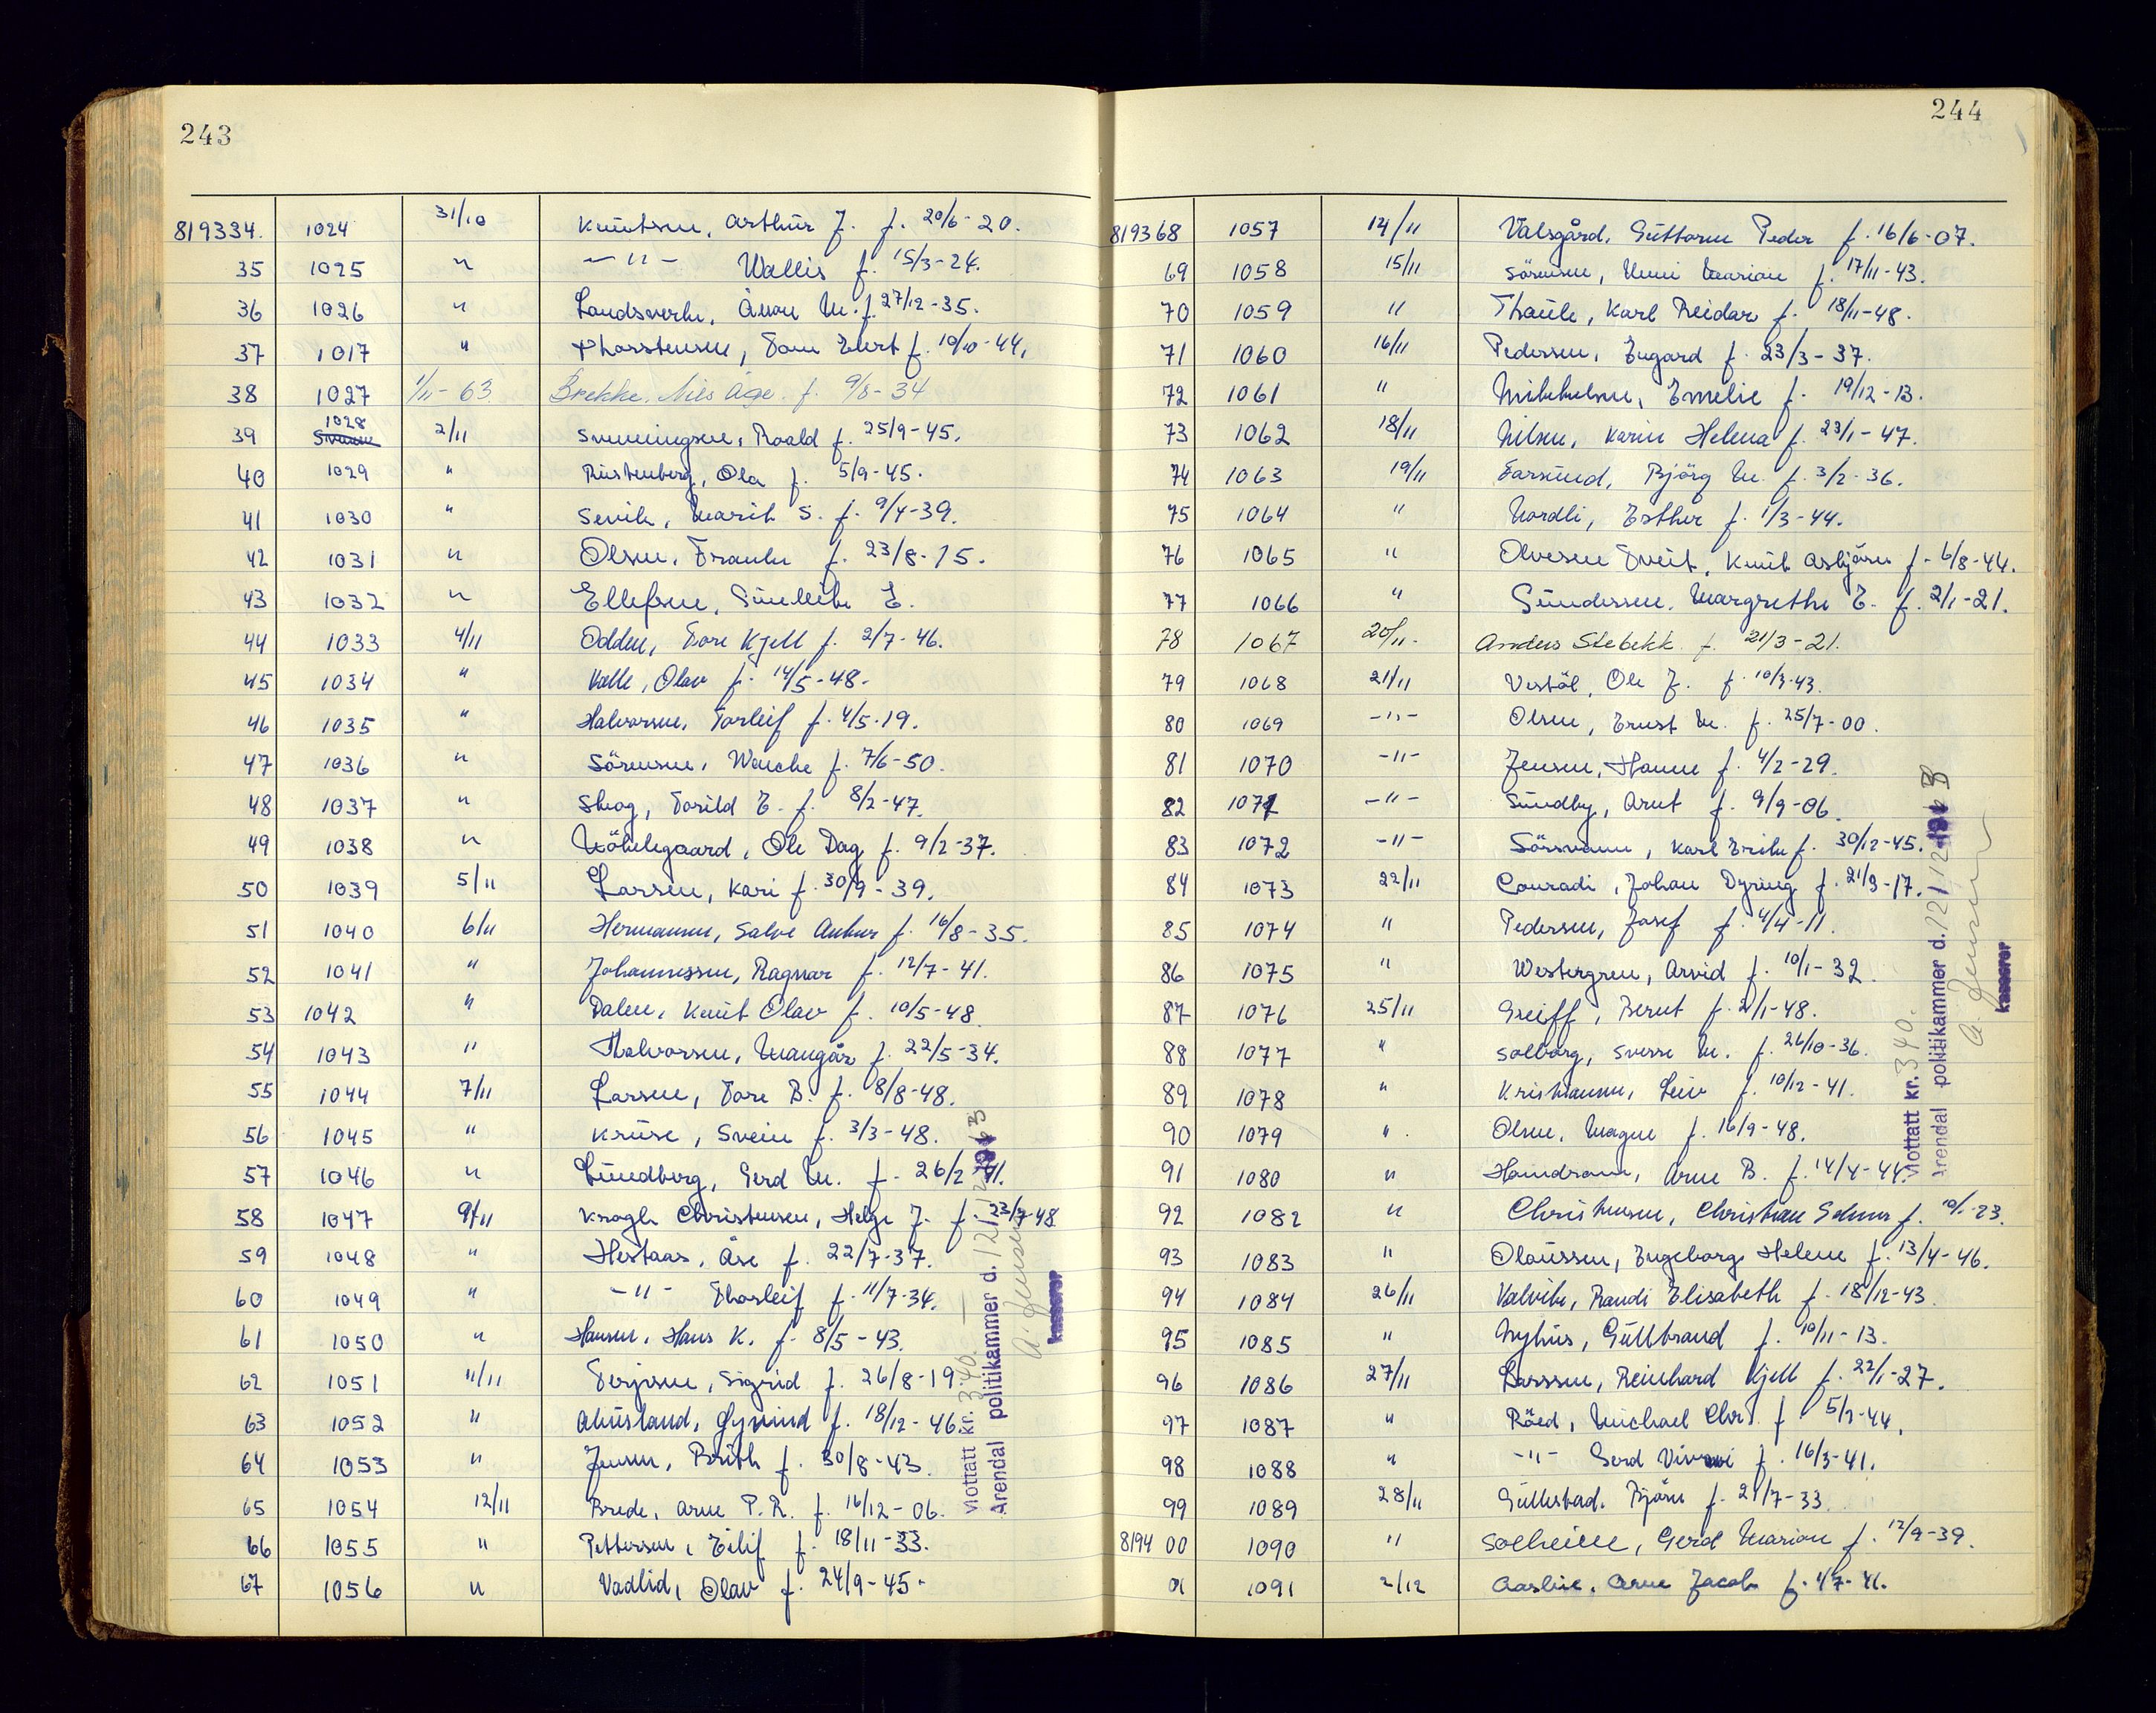 243
819334. 1024 31/10 Knutsen, Arthur J. f. 20/6-20.
35 1025 " -"- Wallis f. 15/3-24.
36 1026 " Landsverk, Anon M. f. 27/12-35.
37 1017 " Thorstensen, Tom Evert f. 10/10-44.
38 1027 1/11-63 Brekke, Nils Åge. f. 9/8-34
39 1028 2/11 Svenningsen, Roald f. 25/9-45.
40 1029 " Rustenberg, Ola f. 5/9-45.
41 1030 " Senik, Marit S. f. 9/4-39.
42 1031 " Olsen, Frank f. 23/8-15.
43 1032 " Ellefsen, Gunleik E.
44 1033 4/11 Odden, Tore Kjell f. 2/7-46.
45 1034 " Valle, Olav f. 14/5-48.
46 1035 " Halvorsen, Torleif f. 4/5-19.
47 1036 " Sörensen, Wenche f. 7/6-50.
48 1037 " Skog, Torild E. f. 8/2-47.
49 1038 " Nöklegaard, Ole Dag f. 9/2-37.
50 1039 5/11 Larsen, Kari f. 30/9-39.
51 1040 6/11 Hermansen, Salve Anker f. 16/8-35.
52 1041 " Johannessen, Ragnar f. 12/7-41.
53 1042 " Dalen, Knut Olav f. 10/5-48.
54 1043 " Halvorsen, Mangår f. 22/5-34.
55 1044 7/11 Larsen, Tore B. f. 8/8-48.
56 1045 " Kruse, Svein f. 3/3-48.
57 1046 " Lundberg, Gerd M. f. 26/2-41.
58 1047 9/11 Krogh Christensen, Helge J. f. 23/7-48
59 1048 " Hestaas, Åse f. 22/7-37.
60 1049 " -"- Thorleif f. 11/7-34.
61 1050 " Hansen, Hans K. f. 8/5-43.
62 1051 11/11 Terjesen, Sigrid f. 26/8-19
63 1052 " Øyvind f. 18/12-46.
64 1053 " Jensen, Brith f. 30/8-43.
65 1054 12/11 Brede, Arne P. R. f. 16/12-06.
66 1055 " Pettersen, Eilif f. 18/11-33.
67 1056 " Vadlid, Olav f. 24/9-45.
Mottatt kr. 340.
Arendal politikammer d. 12/12 1963
A. Jensen
kasserer
244
819368 1057 14/11 Valsgård, Guttorm Peder f. 16/6-07.
69 1058 15/11 Sörensen, Unni Marion f. 17/11-43.
70 1059 " Thaule, Karl Reidar f. 18/11-48.
71 1060 16/11 Pedersen, Engard f. 23/3-37.
72 1061 " Mikkelsen, Emelie f. 19/12-13.
73 1062 18/11 Nilsen, Karin Helena f. 23/1-47.
74 1063 19/11 Farsund, Björg M. f. 3/2-36.
75 1064 " Nordli, Esther f. 1/3-44.
76 1065 " Olvesen Tveit, Knut Asbjörn f. 6/8-44.
77 1066 " Gundersen, Margrethe E. f. 2/1-21.
78 1067 20/11. Anders Stebekk f. 21/3-21.
79 1068 21/11 Vestöl, Ole J. f. 10/3-43.
80 1069 -"- Olsen, Ernst M. f. 25/7-00.
81 1070 -"- Jensen, Hanne f. 4/2-29.
82 1071 -"- Sundby, Arnt f. 9/9-06.
83 1072 -"- Sörsvann, Karl Erik f. 30/12-45.
84 1073 22/11 Conradi, Johan Dyring f. 21/3-17.
85 1074 " Pedersen, Josef f. 4/4-11.
86 1075 " Westergren, Arvid f. 10/1-32.
87 1076 25/11 Greiff, Bernt f. 2/1-48.
88 1077 " Solborg, Sverre M. f. 26/10-36.
89 1078 " Kristiansen, Leiv f. 10/12-41.
90 1079 " Olsen, Magne f. 16/9-48.
91 1080 " Arne B. f. 14/4-44.
92 1082 " Christensen, Christian f. -23.
93 1083 " Olaussen, Engeborg Helene f. 13/4-46.
94 1084 26/11 Valvik, Randi Elisabeth f. 18/12-43.
95 1085 " Nyhus, Gullbrand f. 10/11-13.
96 1086 27/11 Larssen, Reinhard Kjell f. 22/1-27.
97 1087 " Röed, Michael Chr. f. 5/3-44.
98 1088 " -"- Gerd Vivi f. 16/3-41.
99 1089 28/11 Gullestad, Björn f. 21/7-33.
819400 1090 " Solheim, Gerd Marion f. 12/9-39.
01 1091 2/12 Aaslie, Arne Jacob f. 4/7-41.
Mottatt kr. 340.
Arendal politikammer d. 12/12 1963
A. Jensen
kasserer